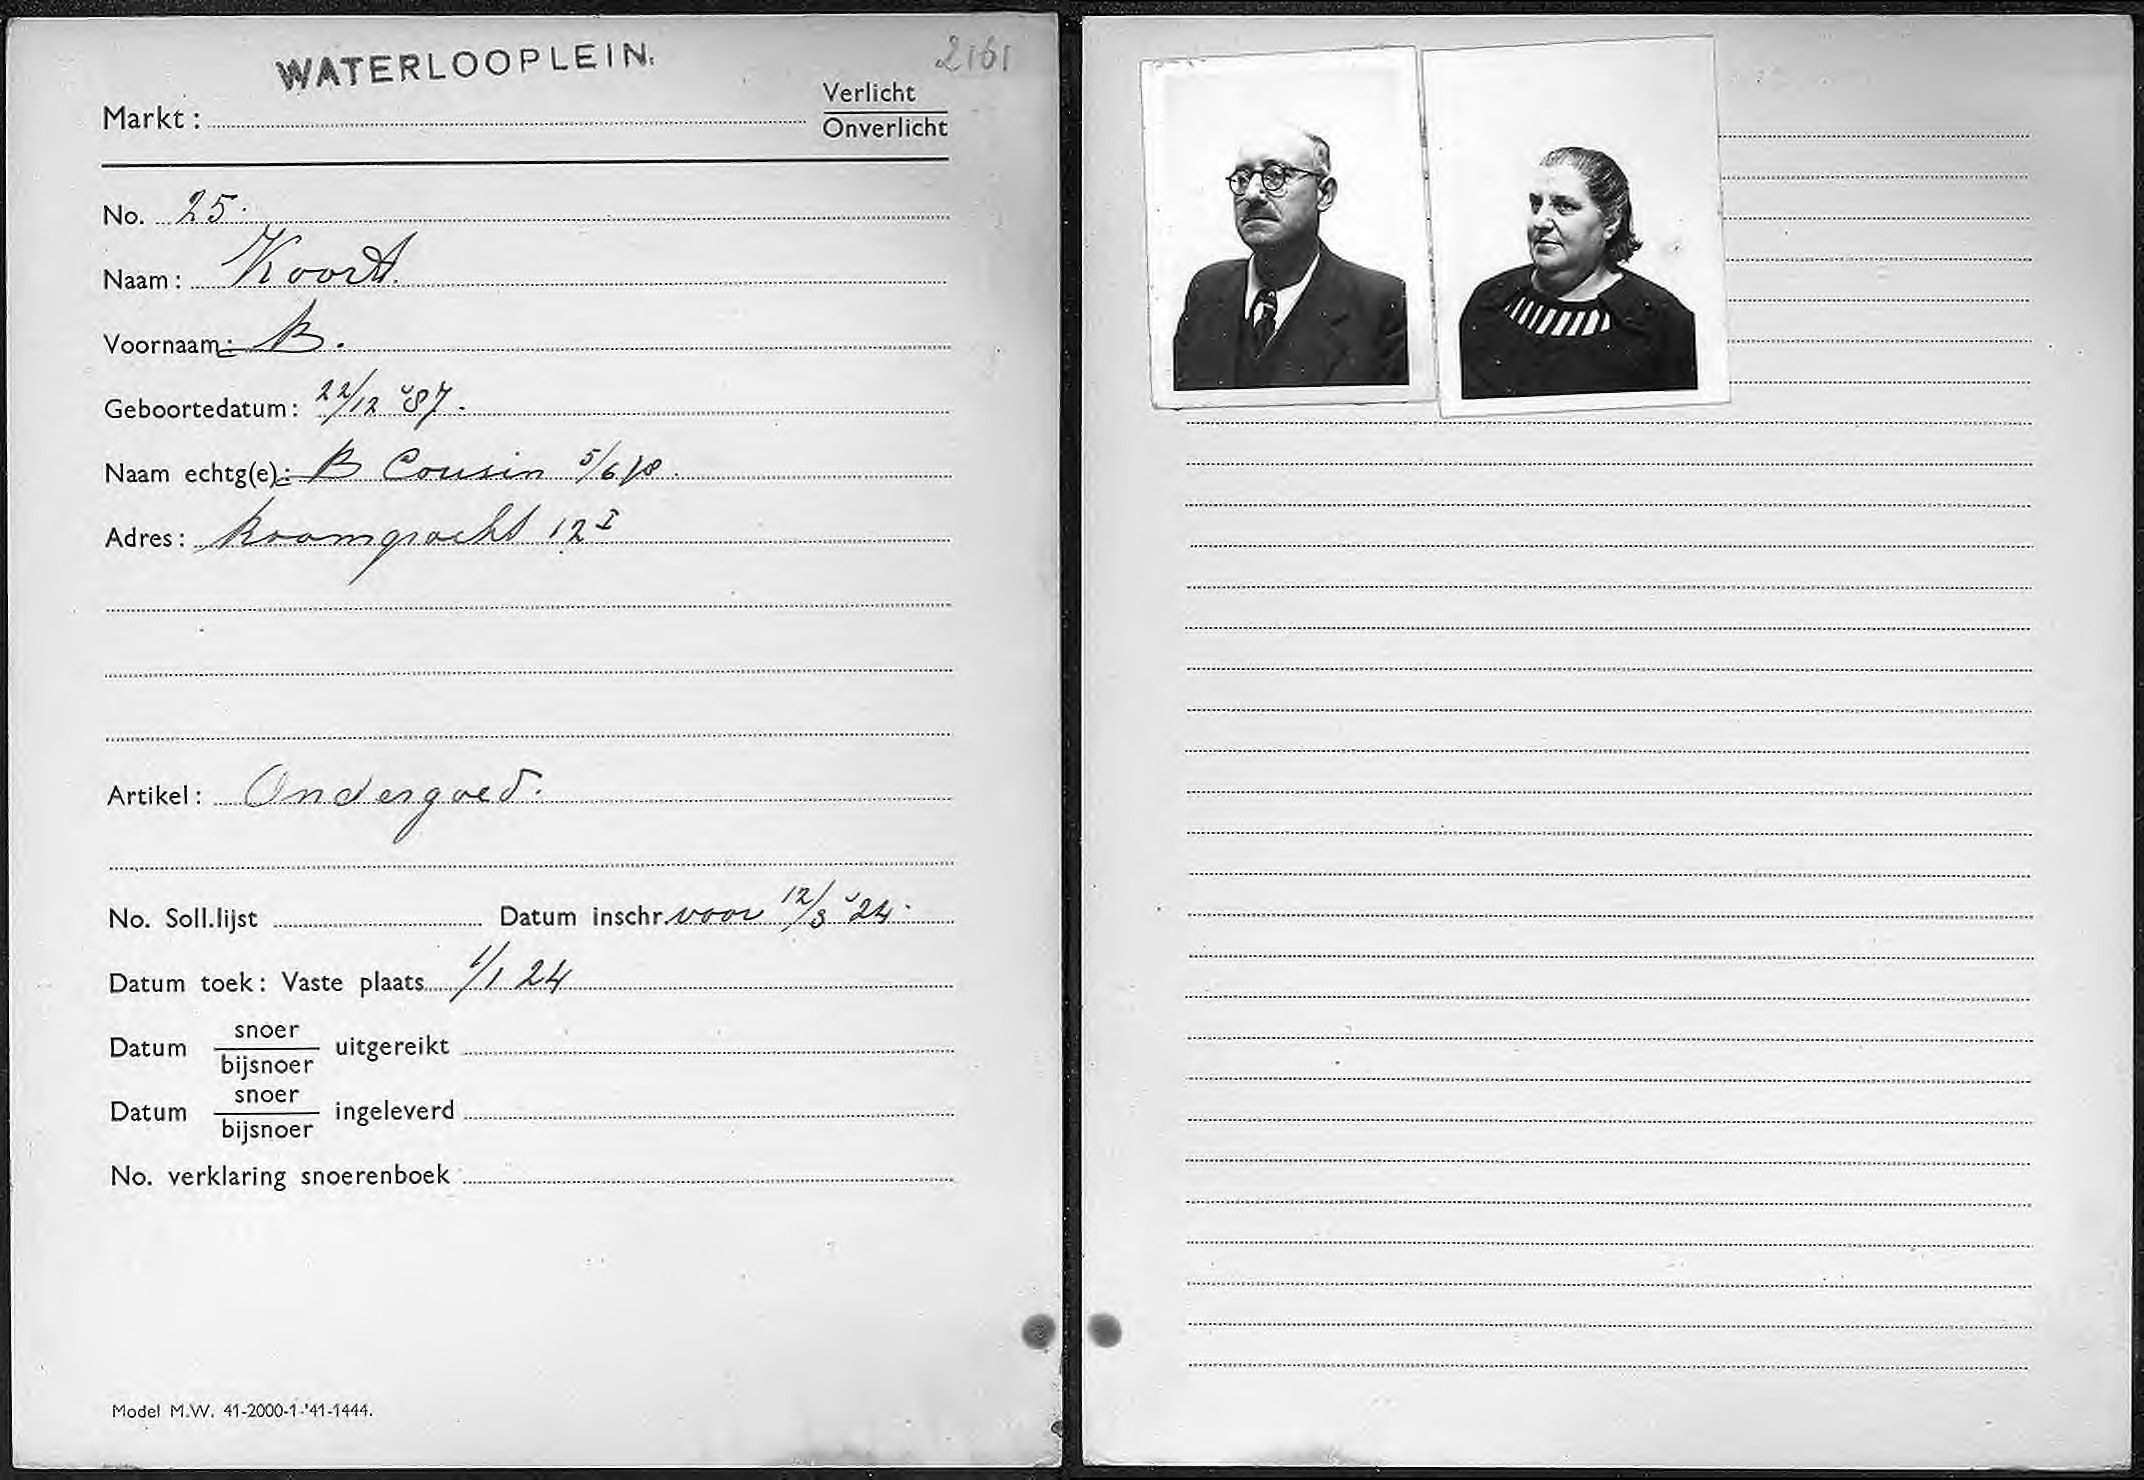 WATERLOOPLEIN.
2161
Markt :
Verlicht
Onverlicht
No. 25.
Naam : Koort.
Voornaam : B.
Geboortedatum : 22/12 '87.
Naam echtg(e) : B Cousin 5/6
Adres : 12 I
Artikel : Ondergoed.
No. Soll.lijst Datum inschr. voor 12/3 '24.
Datum toek : Vaste plaats 1/1 24
Datum snoer/bijsnoer uitgereikt
Datum snoer/bijsnoer ingeleverd
No. verklaring snoerenboek
Model M.W. 41-2000-1-'41-1444.